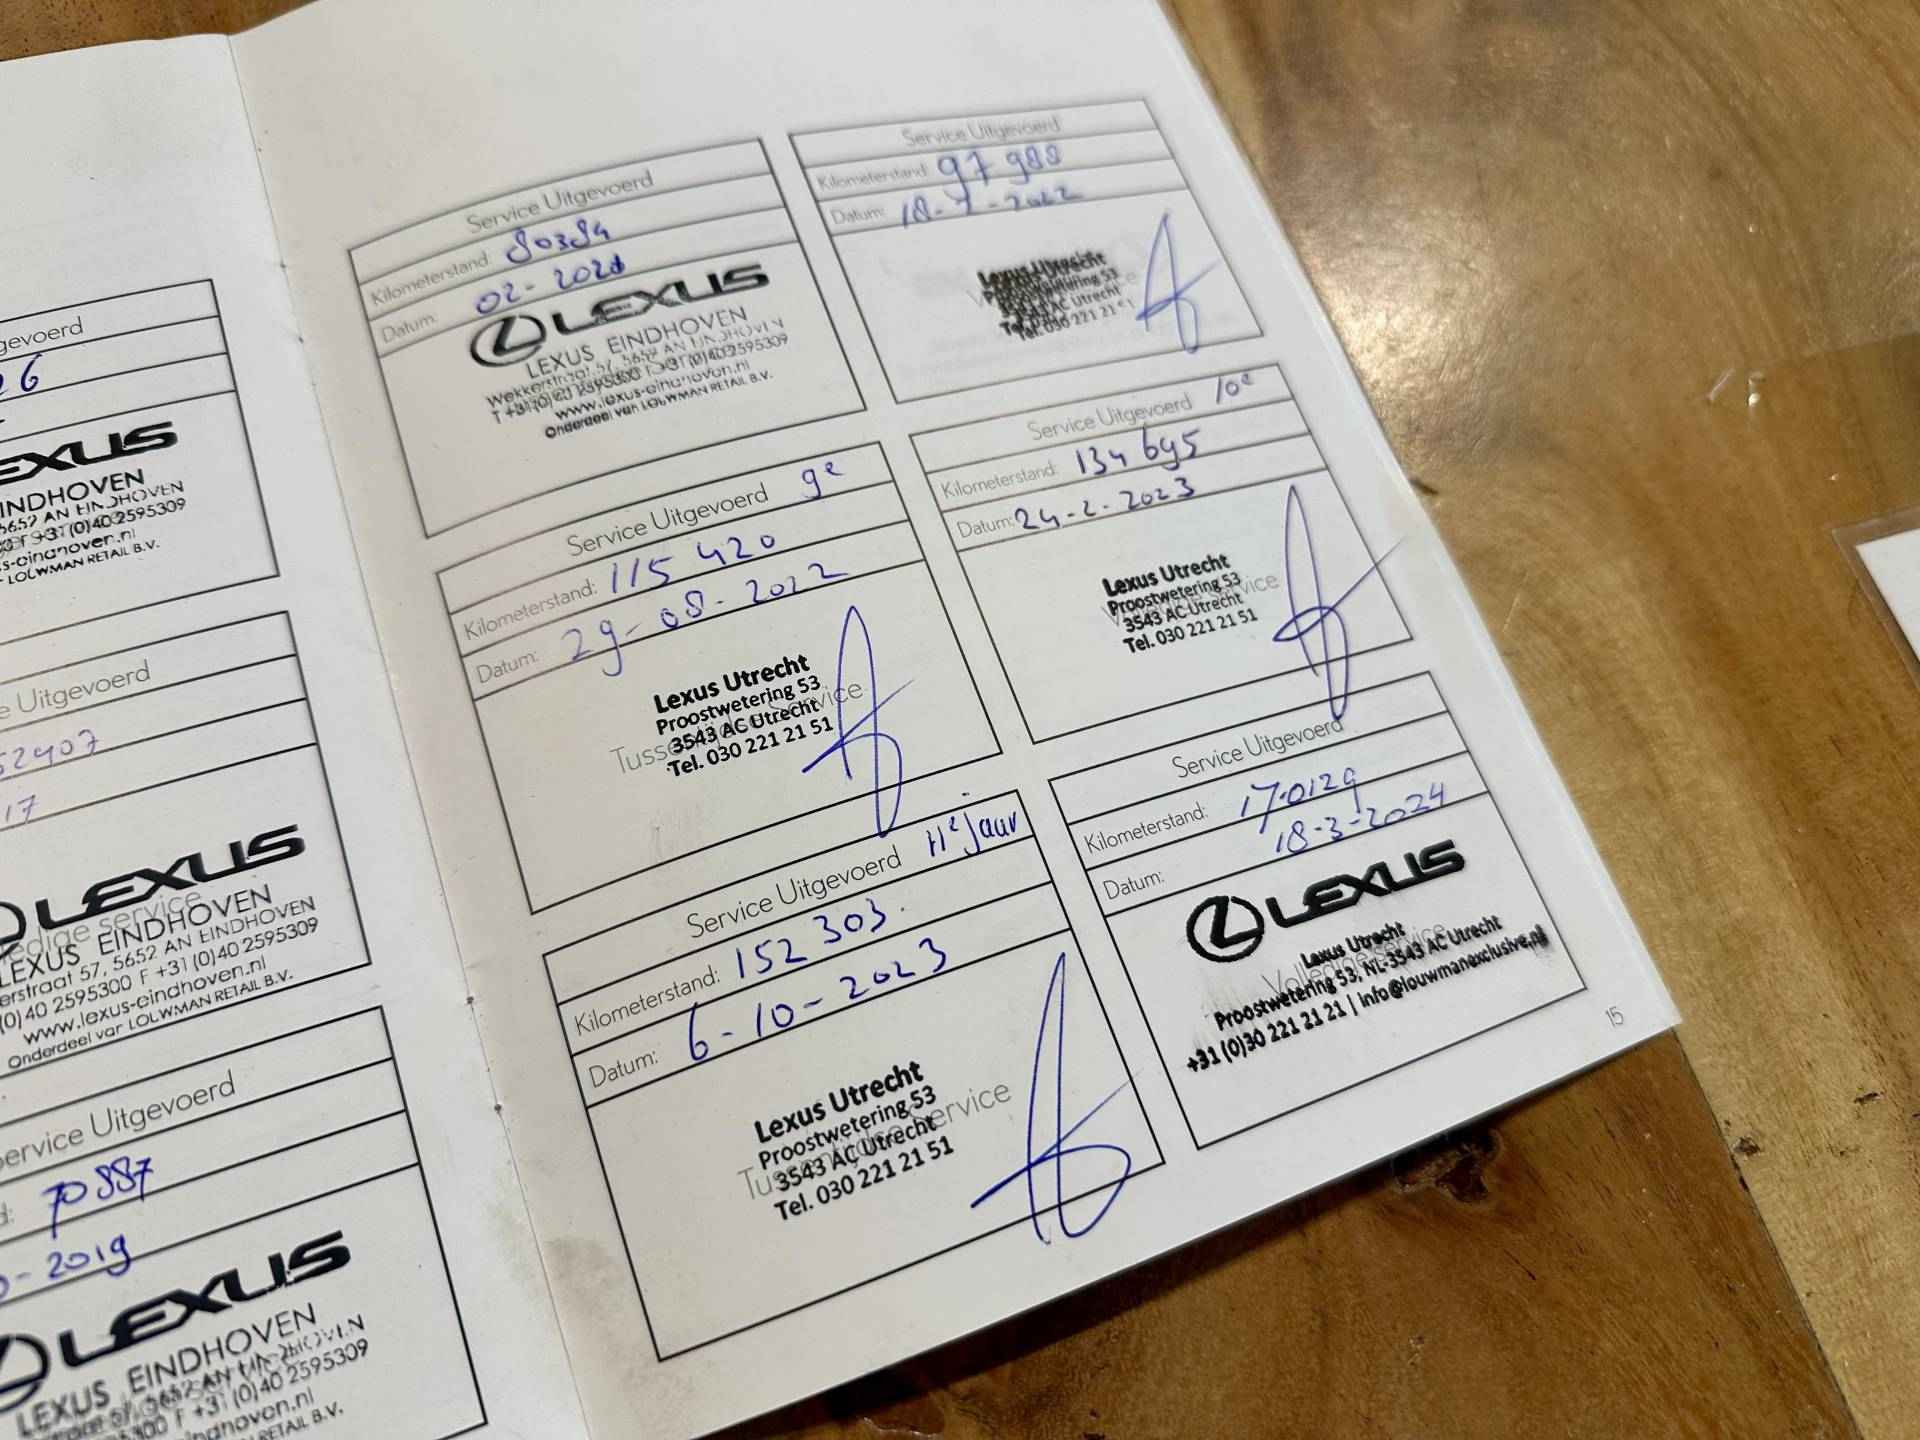 gevoerd
26
EXUS
INDHOVEN
5652 AN EINDHOVEN
F +31 (0)40 2595309
s-eindhoven.nl
LOUWMAN RETAIL B.V.
e Uitgevoerd
52407
17
LEXUS
ledige service
LEXUS EINDHOVEN
erstraat 57, 5652 AN EINDHOVEN
(0)40 2595300 F +31 (0)40 2595309
www.lexus-eindhoven.nl
Onderdeel van LOUWMAN RETAIL B.V.
Service Uitgevoerd
d: 70887
- 2019
LEXUS
LEXUS EINDHOVEN
57, 5652 AN EINDHOVEN
5300 F +31 (0)40 2595309
eindhoven.nl
RETAIL B.V.
Service Uitgevoerd
Kilometerstand: 80384
Datum: 02-2021
LEXUS
LEXUS EINDHOVEN
Wekkerstraat 57, 5652 AN EINDHOVEN
T +31 (0)40 2595300 F +31 (0)40 2595309
www.lexus-eindhoven.nl
Onderdeel van LOUWMAN RETAIL B.V.
Service Uitgevoerd
Kilometerstand: 97 988
Datum: 18-7-2022
Lexus Utrecht
Proostwetering 53
3543 AC Utrecht
Tel. 030 221 21 51
Service Uitgevoerd 9e
Kilometerstand: 115 420
Datum: 29-08-2022
Lexus Utrecht
Proostwetering 53
3543 AC Utrecht
Tussentijdse Service
Tel. 030 221 21 51
Service Uitgevoerd 10e
Kilometerstand: 134 695
Datum: 24-2-2023
Lexus Utrecht
Proostwetering 53
Volledige Service
3543 AC Utrecht
Tel. 030 221 21 51
Service Uitgevoerd 11e jaar
Kilometerstand: 152 303.
Datum: 6-10-2023
Lexus Utrecht
Proostwetering 53
Tussentijdse Service
3543 AC Utrecht
Tel. 030 221 21 51
Service Uitgevoerd
Kilometerstand: 170129
Datum: 18-3-2024
LEXUS
Lexus Utrecht
Volledige Service
Proostwetering 53, NL-3543 AC Utrecht
+31 (0)30 221 21 21 | info@louwmanexclusive.nl
15